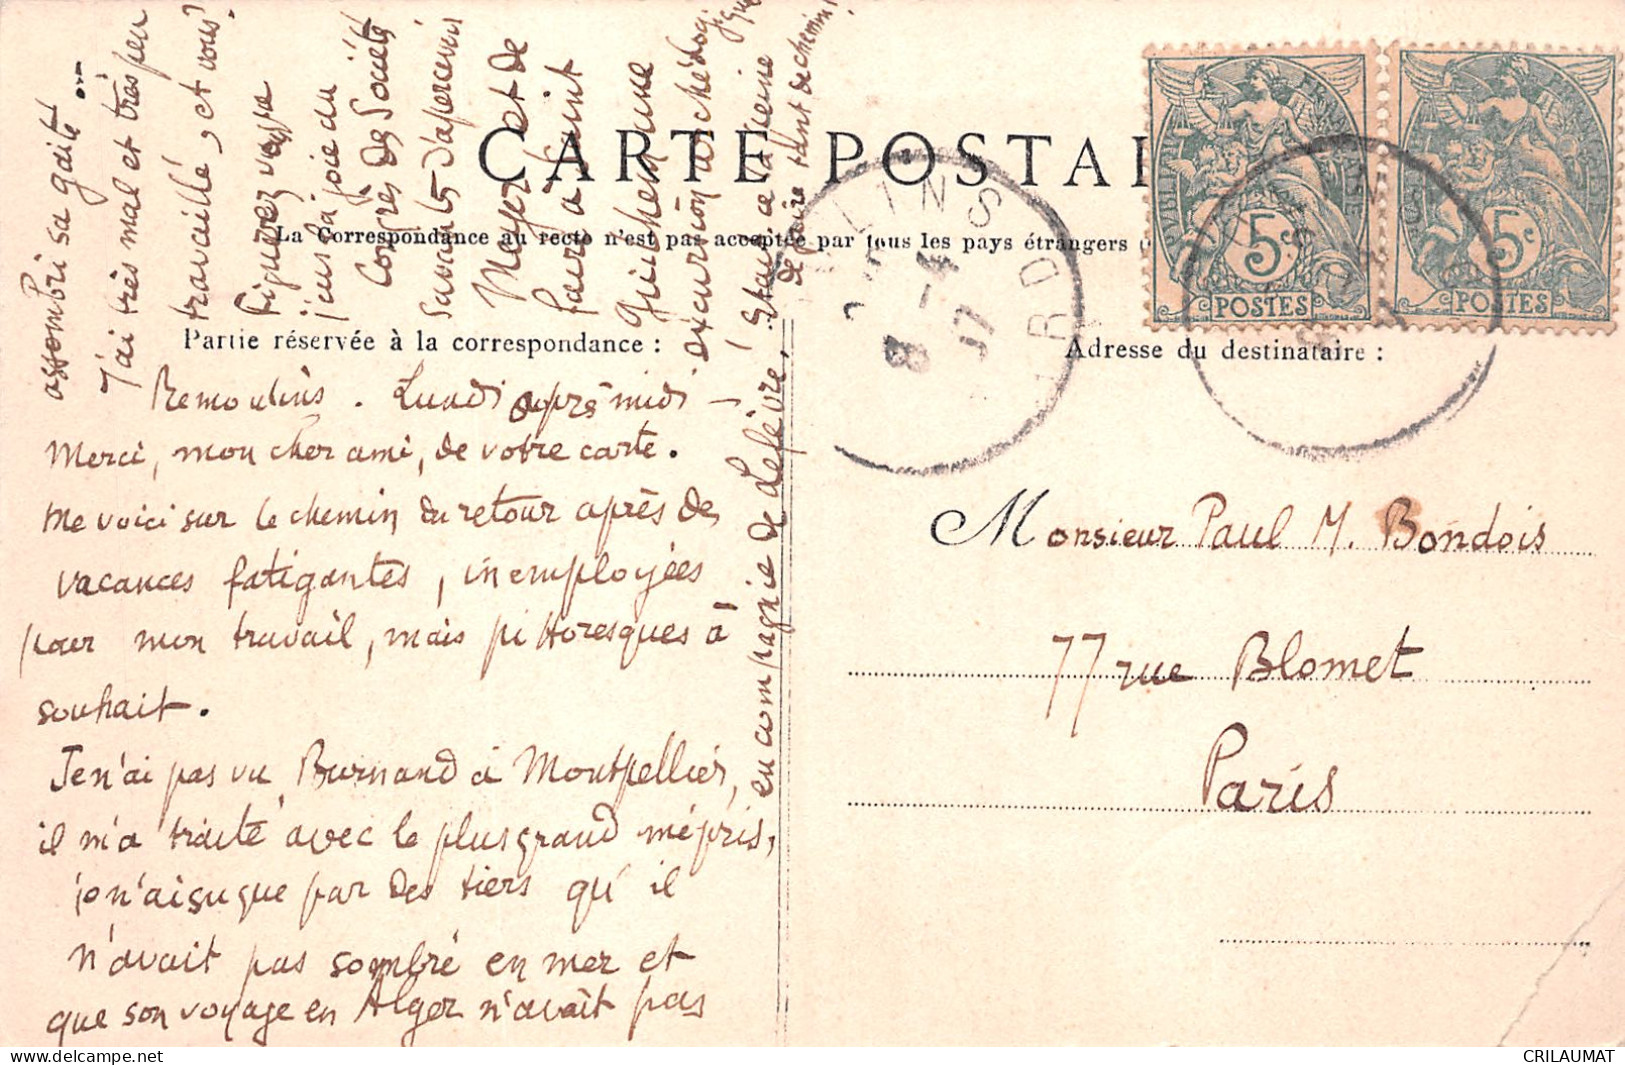 CARTE POSTAL
La Correspondance au recto n'est pas acceptée par tous les pays étrangers
Partie réservée à la correspondance :
Adresse du destinataire :
Remoulins. Lundi après midi –
Merci, mon cher ami, de votre carte.
Me voici sur le chemin du retour après des
vacances fatigantes, inemployées
pour mon travail, mais pittoresques à
souhait.
Je n'ai pas vu Burnand à Montpellier,
il m'a traité avec le plus grand mépris,
je n'ai su que par des tiers qu'il
n'avait pas sombré en mer et
que son voyage en Alger n'avait pas
assombri sa gaité...
J'ai très mal et très peu
travaillé, et vous?
Figurez vous
j'eus la joie du
Congrès des Sociétés
savantes d'apercevoir
Meyer et de
faire à Saint
Guilhem une
excursion archéologique
en compagnie de Lefèvre!
Etait-ce la peine
de faire tant de chemin!
Monsieur Paul M. Bondois
77 rue Blomet
Paris
REPUBLIQUE FRANÇAISE
5c
POSTES
REPUBLIQUE FRANÇAISE
5c
POSTES
8 -4
07
GARD
CRILAUMAT